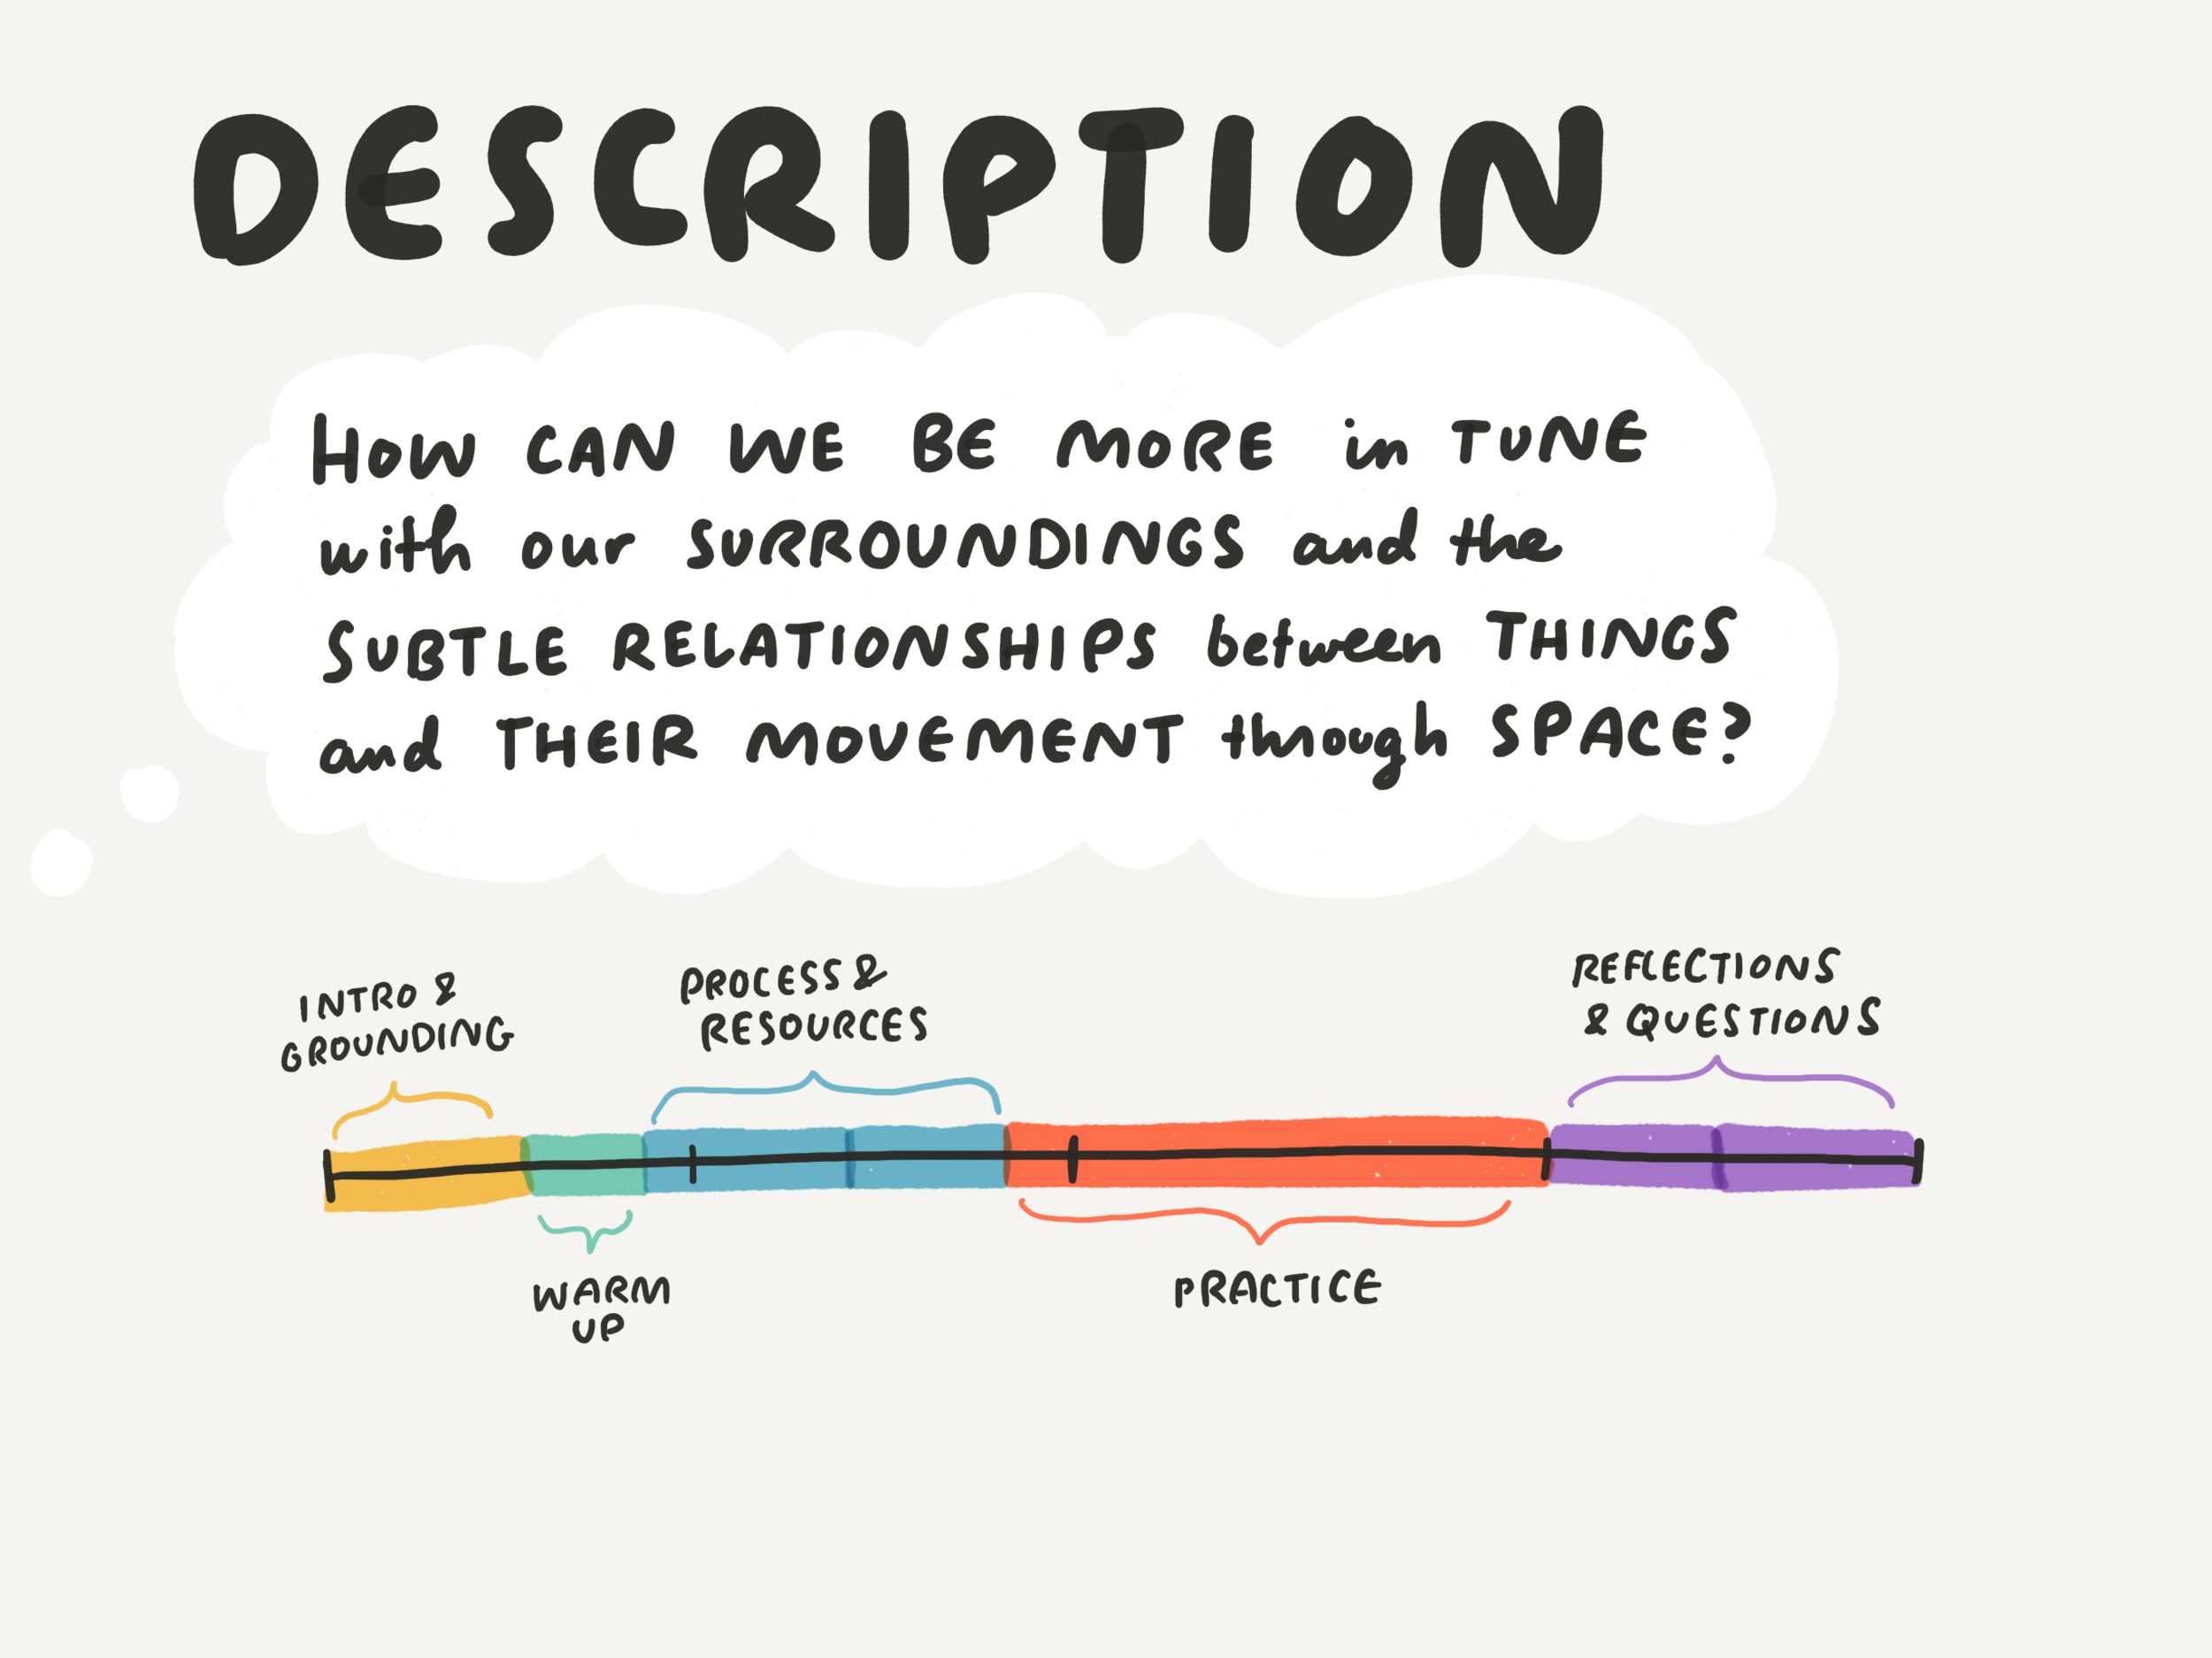 DESCRIPTION
HOW CAN WE BE MORE in TUNE
with our SURROUNDINGS and the
SUBTLE RELATIONSHIPS between THINGS
and THEIR MOVEMENT through SPACE?
INTRO &
GROUNDING
PROCESS &
RESOURCES
REFLECTIONS
& QUESTIONS
WARM
UP
PRACTICE